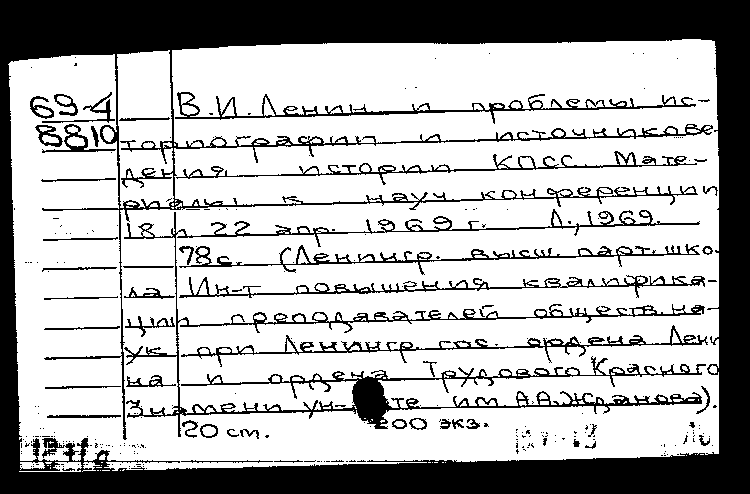 69-4 В.И.Ленин и проблемы ис-
8810 ториографии и источникове-
дения истории КПСС. Мате-
риалы к науч. конференции
18 и 22 апр. 1969 г. Л., 1969.
78 с. (Ленингр. высш. парт. шко-
ла Ин-т повышения квалифика-
ции преподавателей обществ. на-
ук при Ленингр. гос. ордена Лени
на и ордена Трудового Красного
Знамени ун- те им. А.А.Жданова).
20 см. 200 экз.